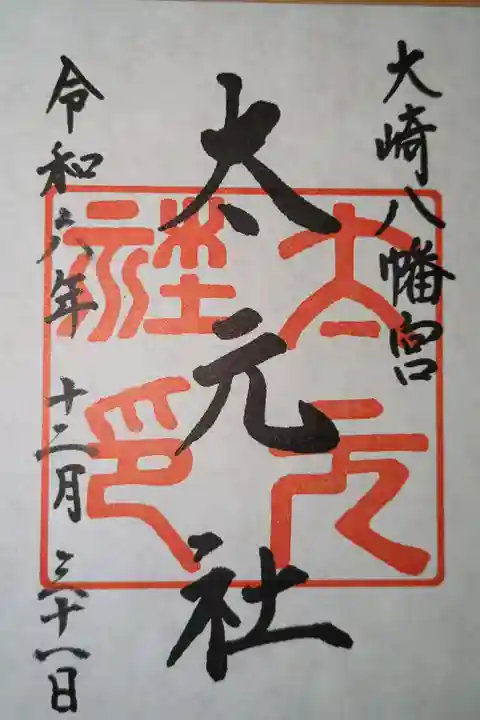 大崎八幡宮
太元社
太元社印
令和六年 十二月 三十一日